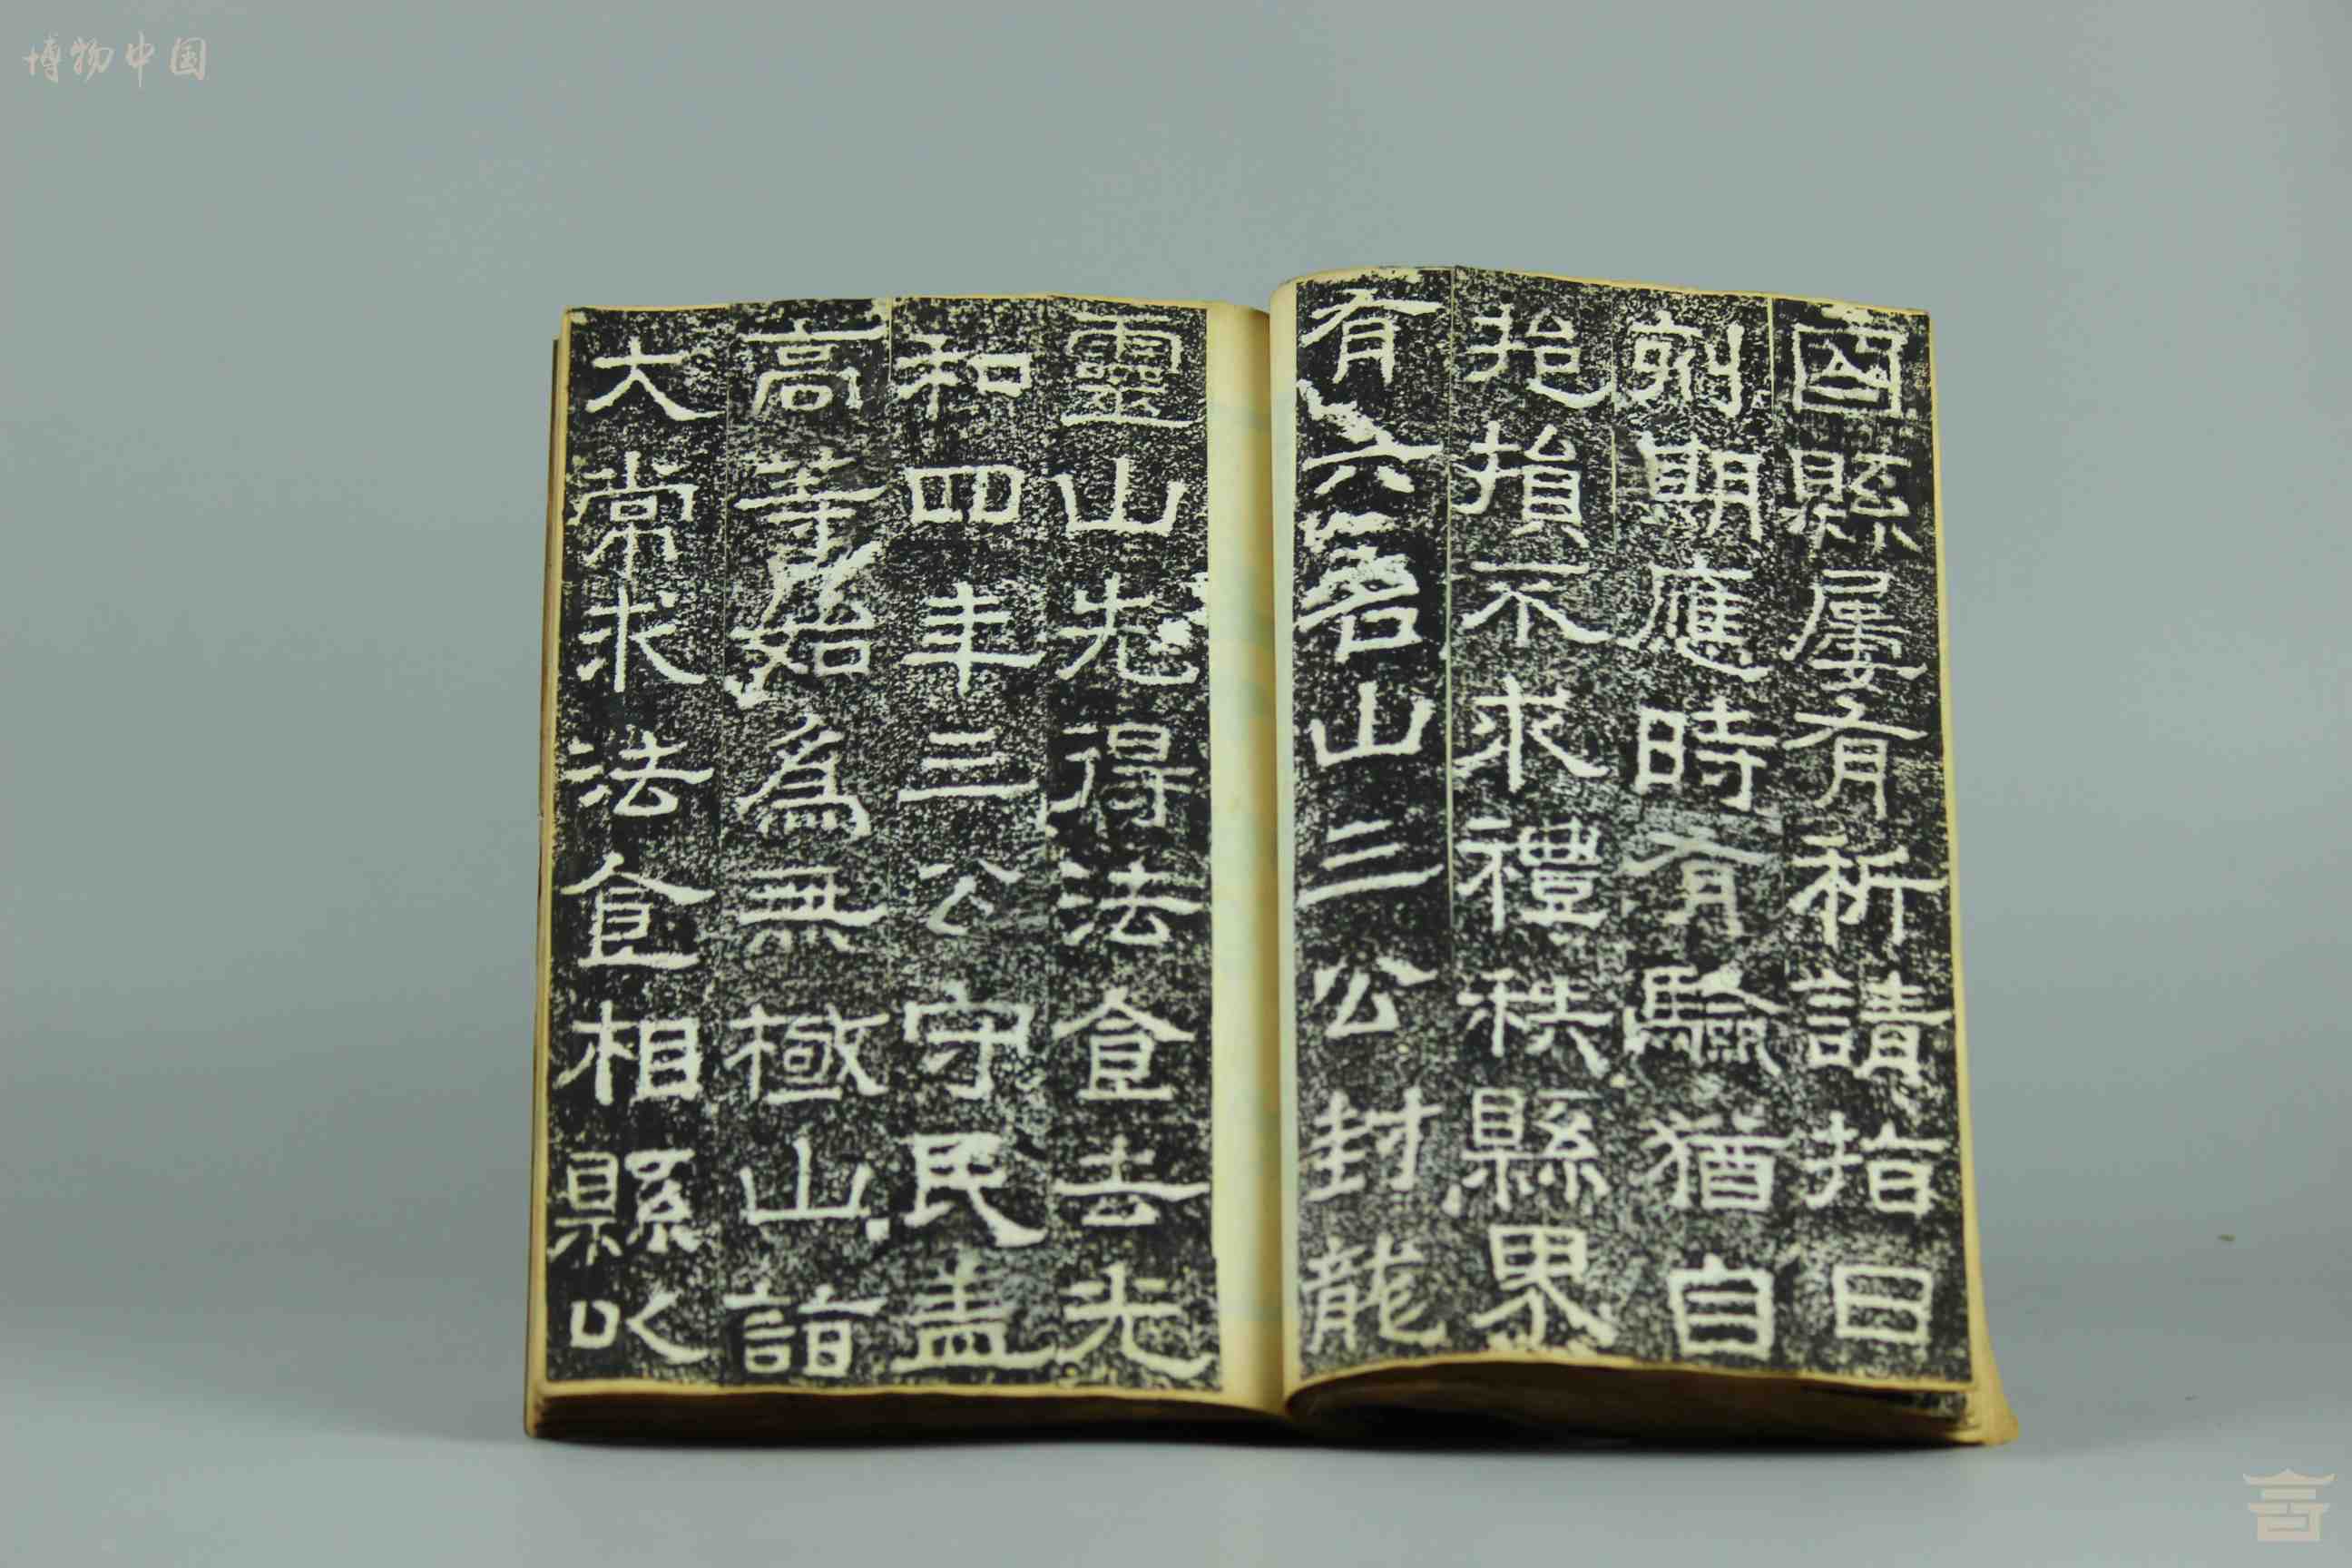 博物中国
國縣屢有祈請指日
刻期應時有驗猶自
挹損不求禮秩縣界
有六名山三公封龍
靈山先得法食去光
和四年三公守民盖
高等始爲無極山詣
大常求法食相縣以